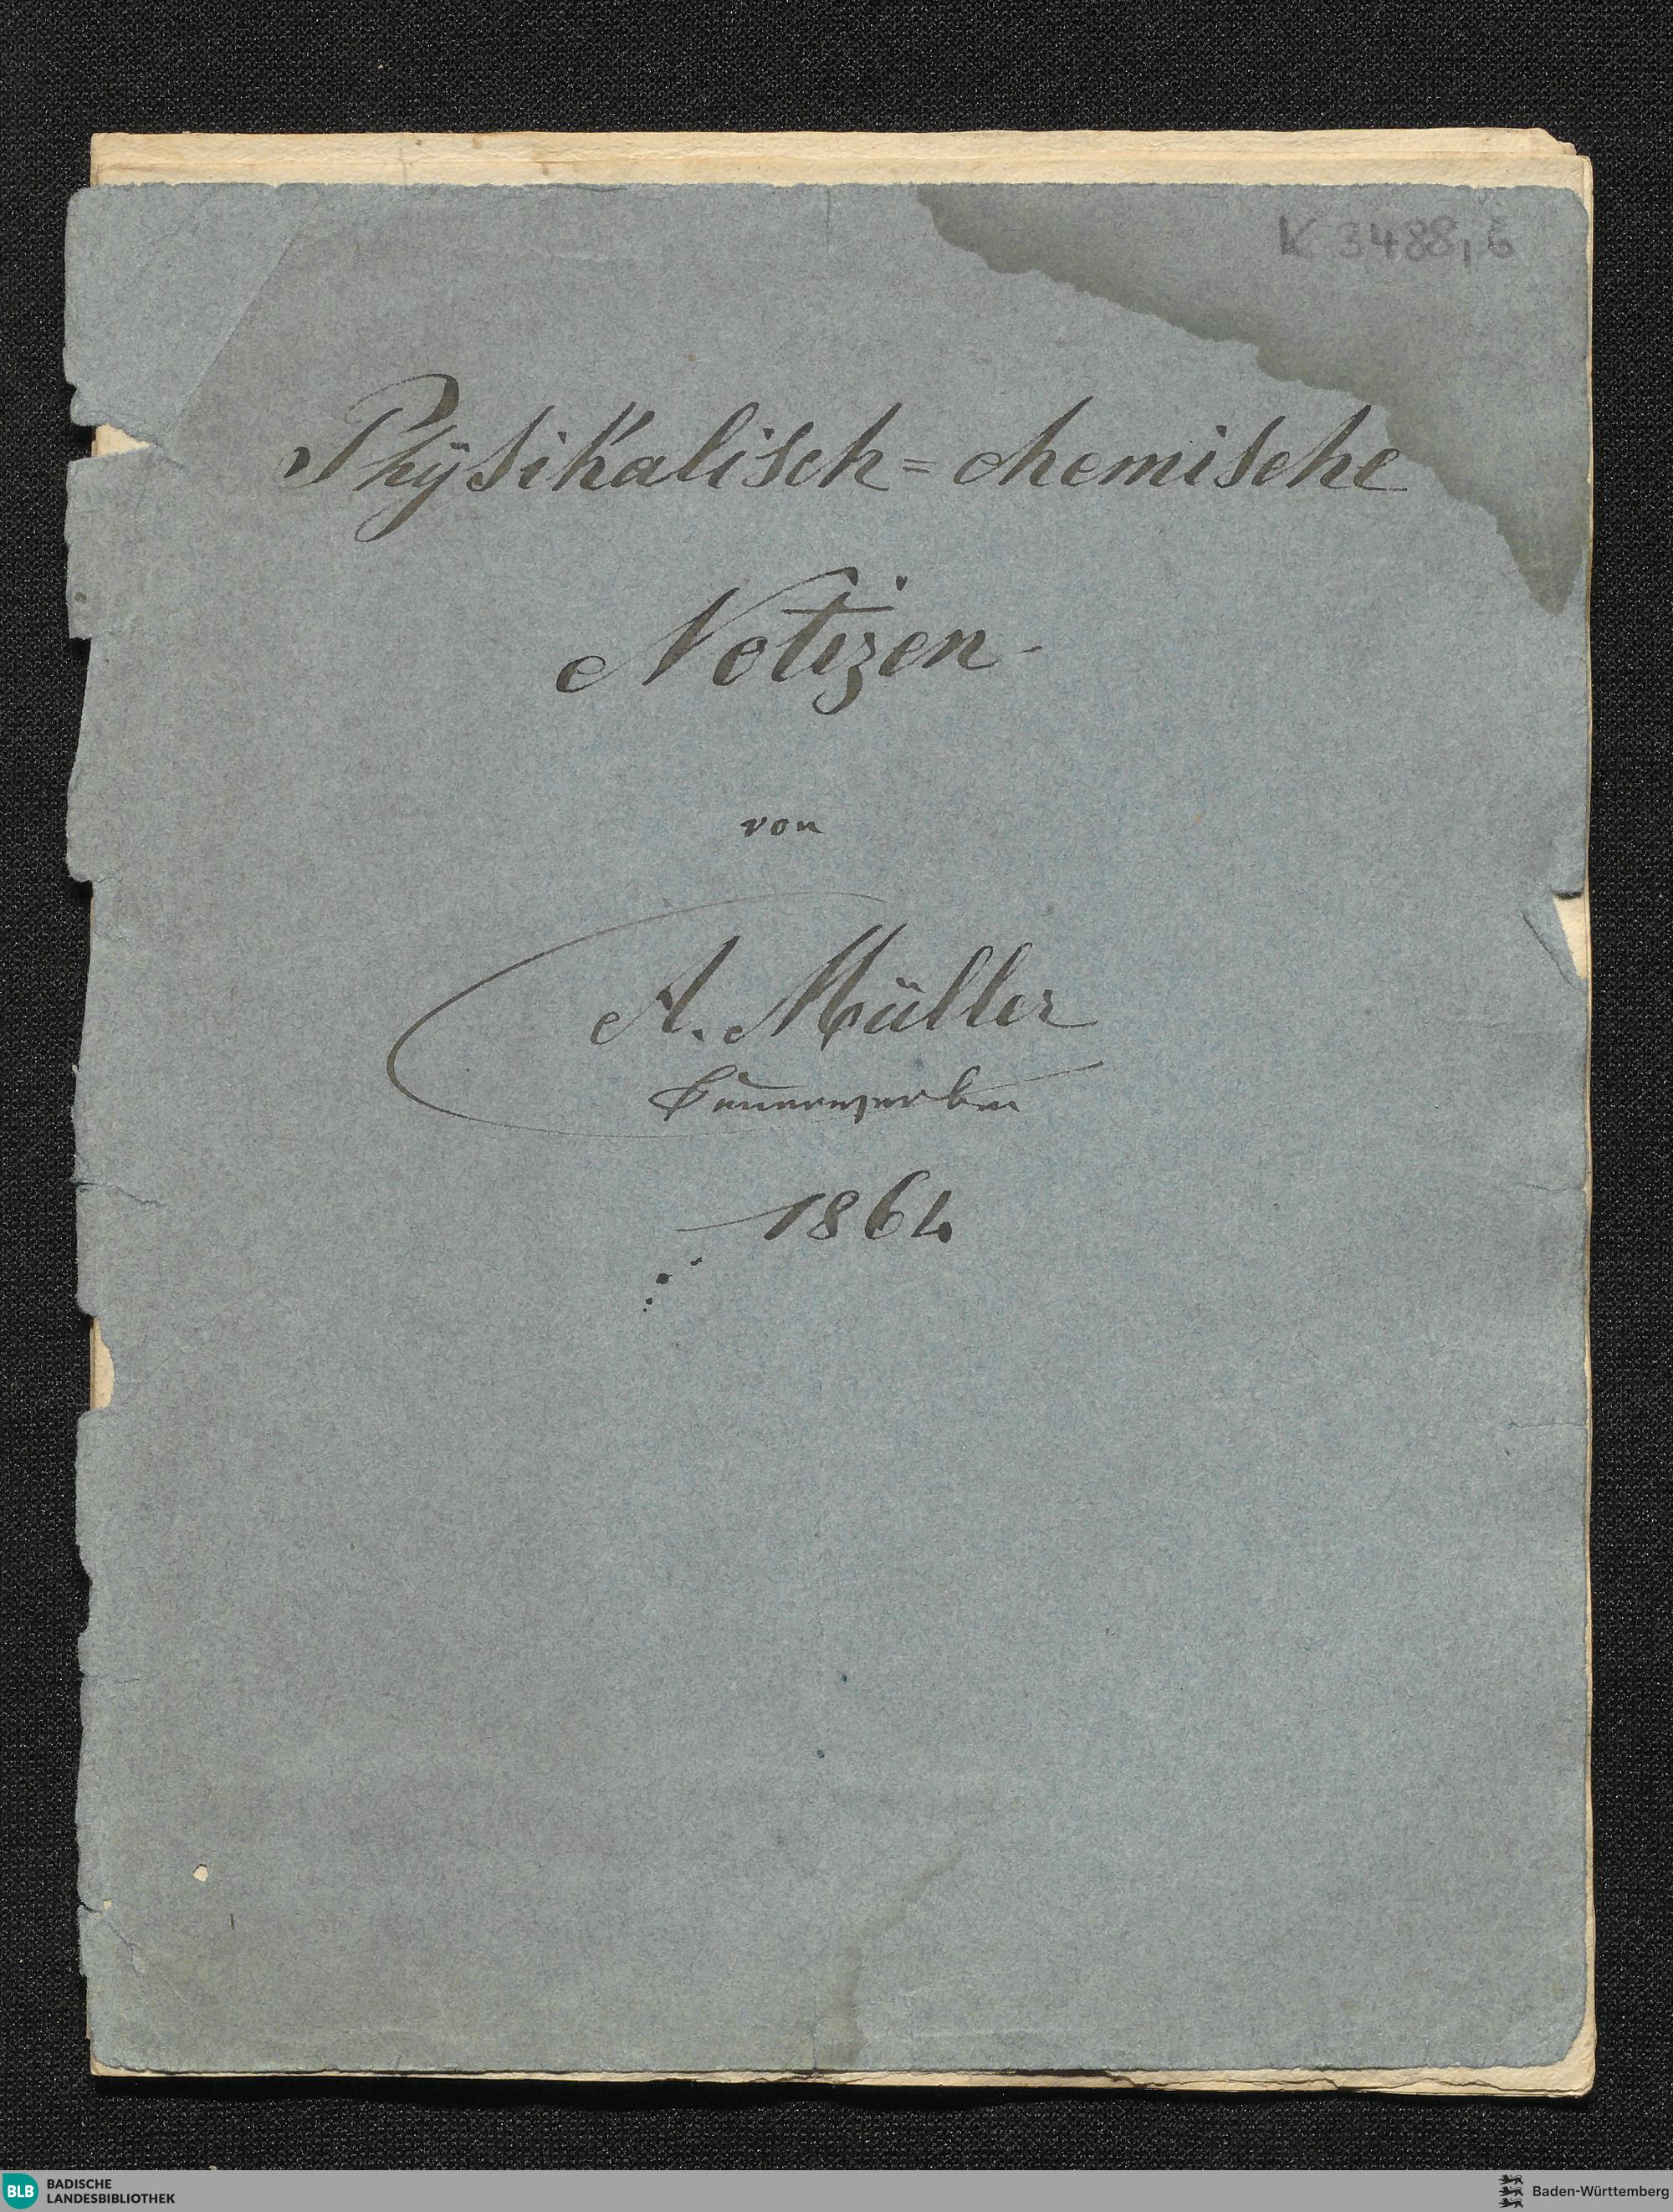 K 3488, 6
Physikalisch=chemische
Notizen
von
A. Müller
Feuerwerker
1864
BLB
BADISCHE
LANDESBIBLIOTHEK
Baden-Württemberg